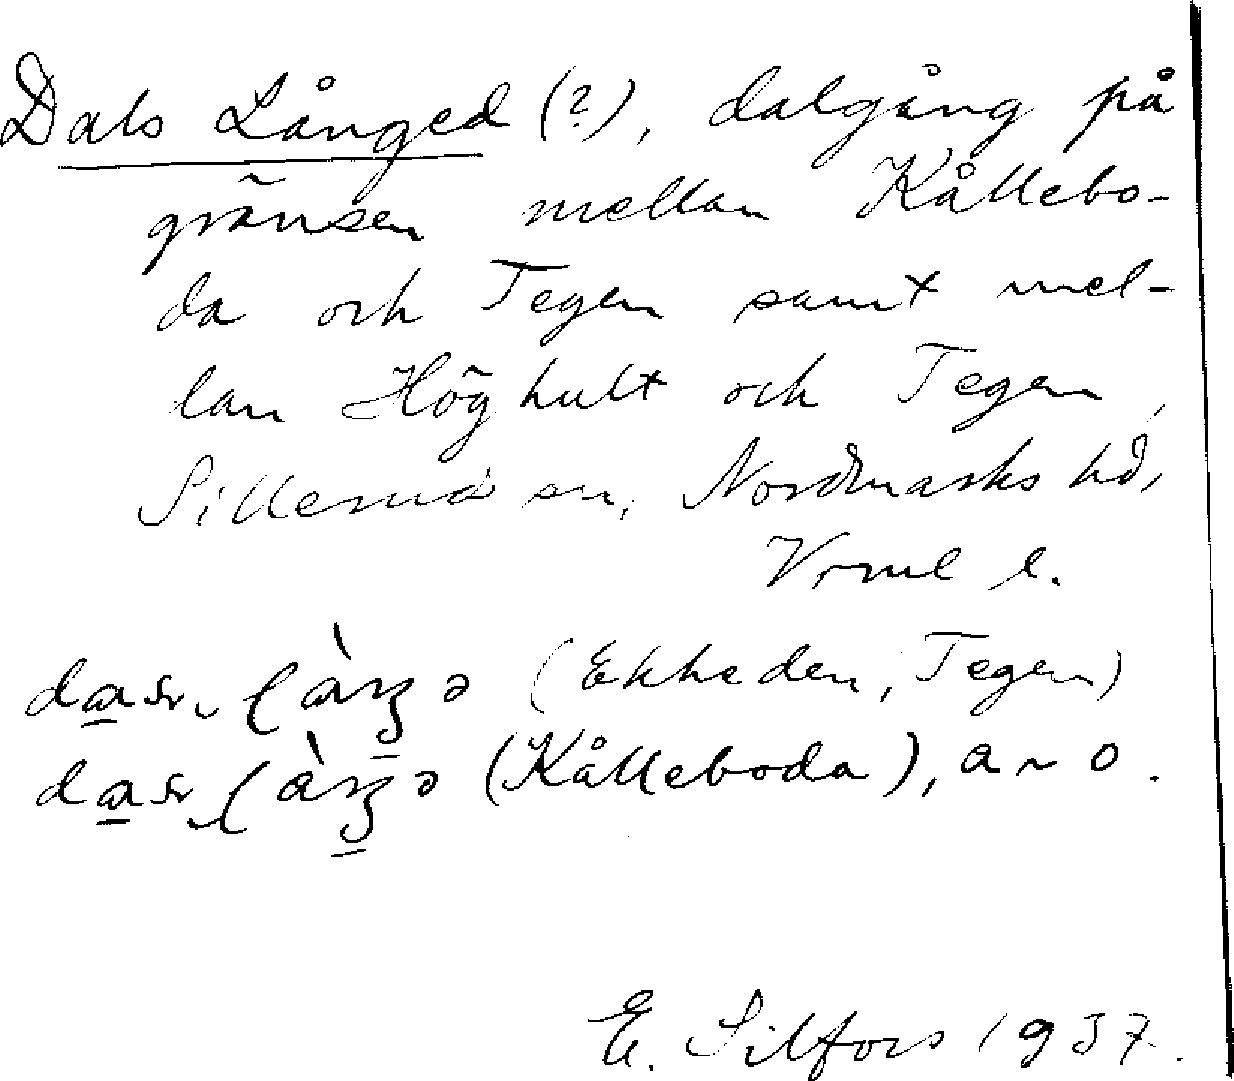 Dals Långed (?), dalgång på
gränsen mellan Kållebo-
da och Tegen samt mel-
lan Höghult och Tegen,
Sillerud sn, Nordmarks hd,
Vrml l.
(Ekheden, Tegen)
(Kålleboda), a ~ o.
E. Silfors 1937.